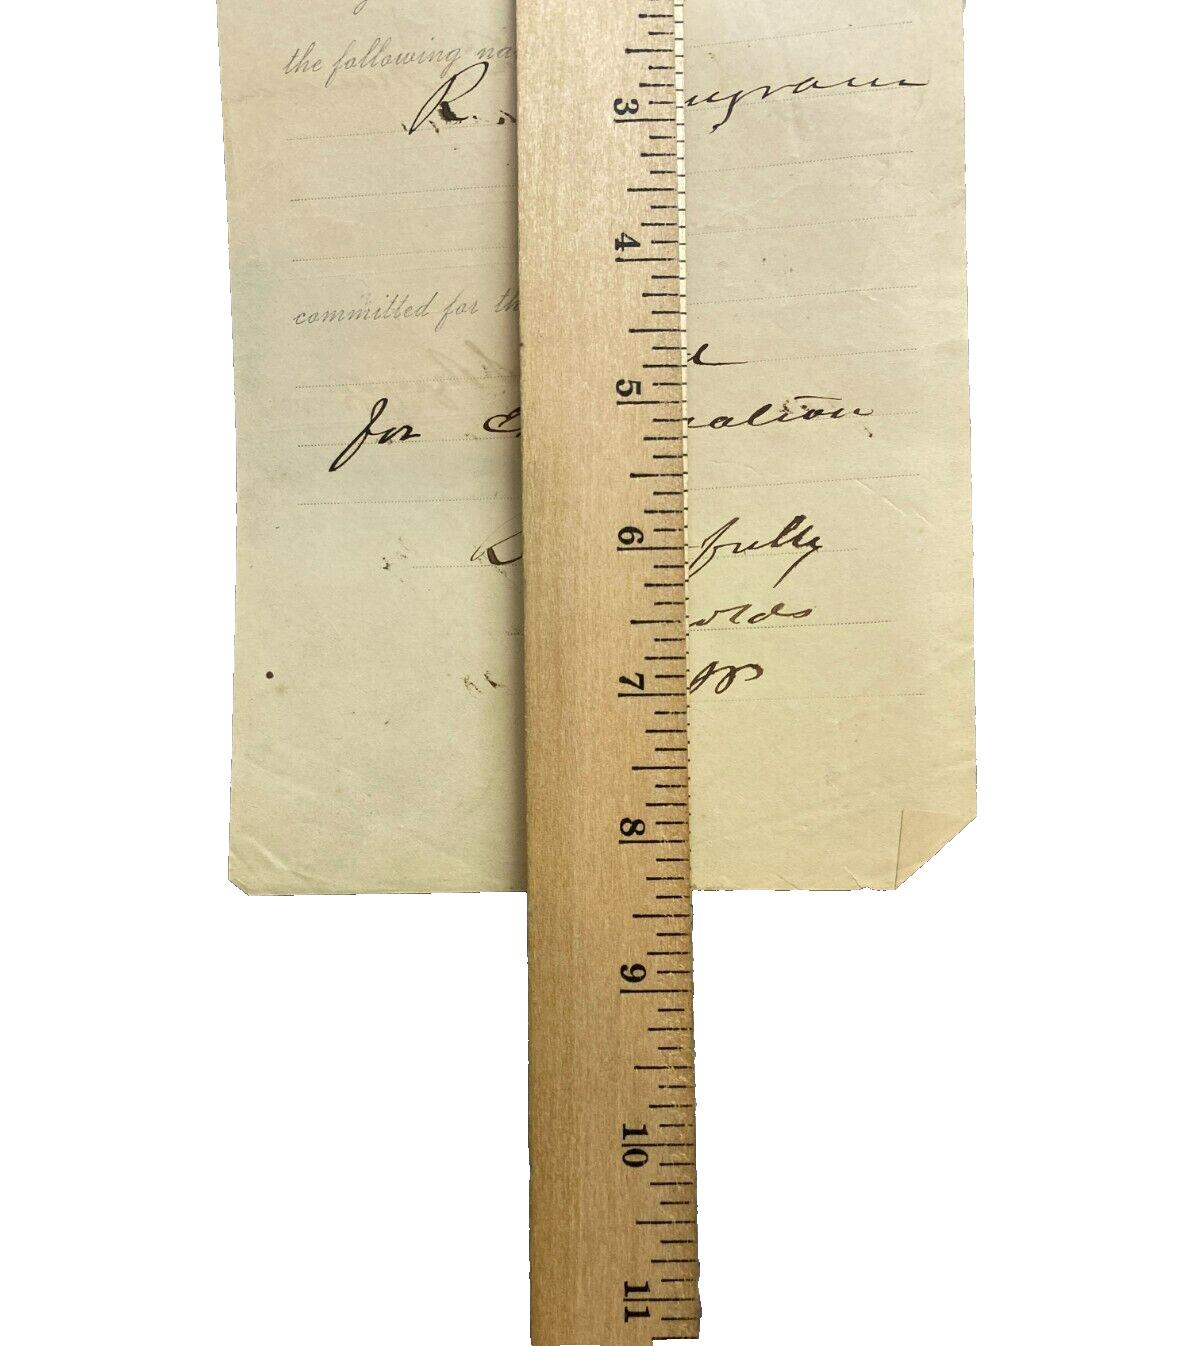 the following na
R. ngram
3
4
committed for th
d
5
for E nation
6
R fully
olds
7
8
9
10
11